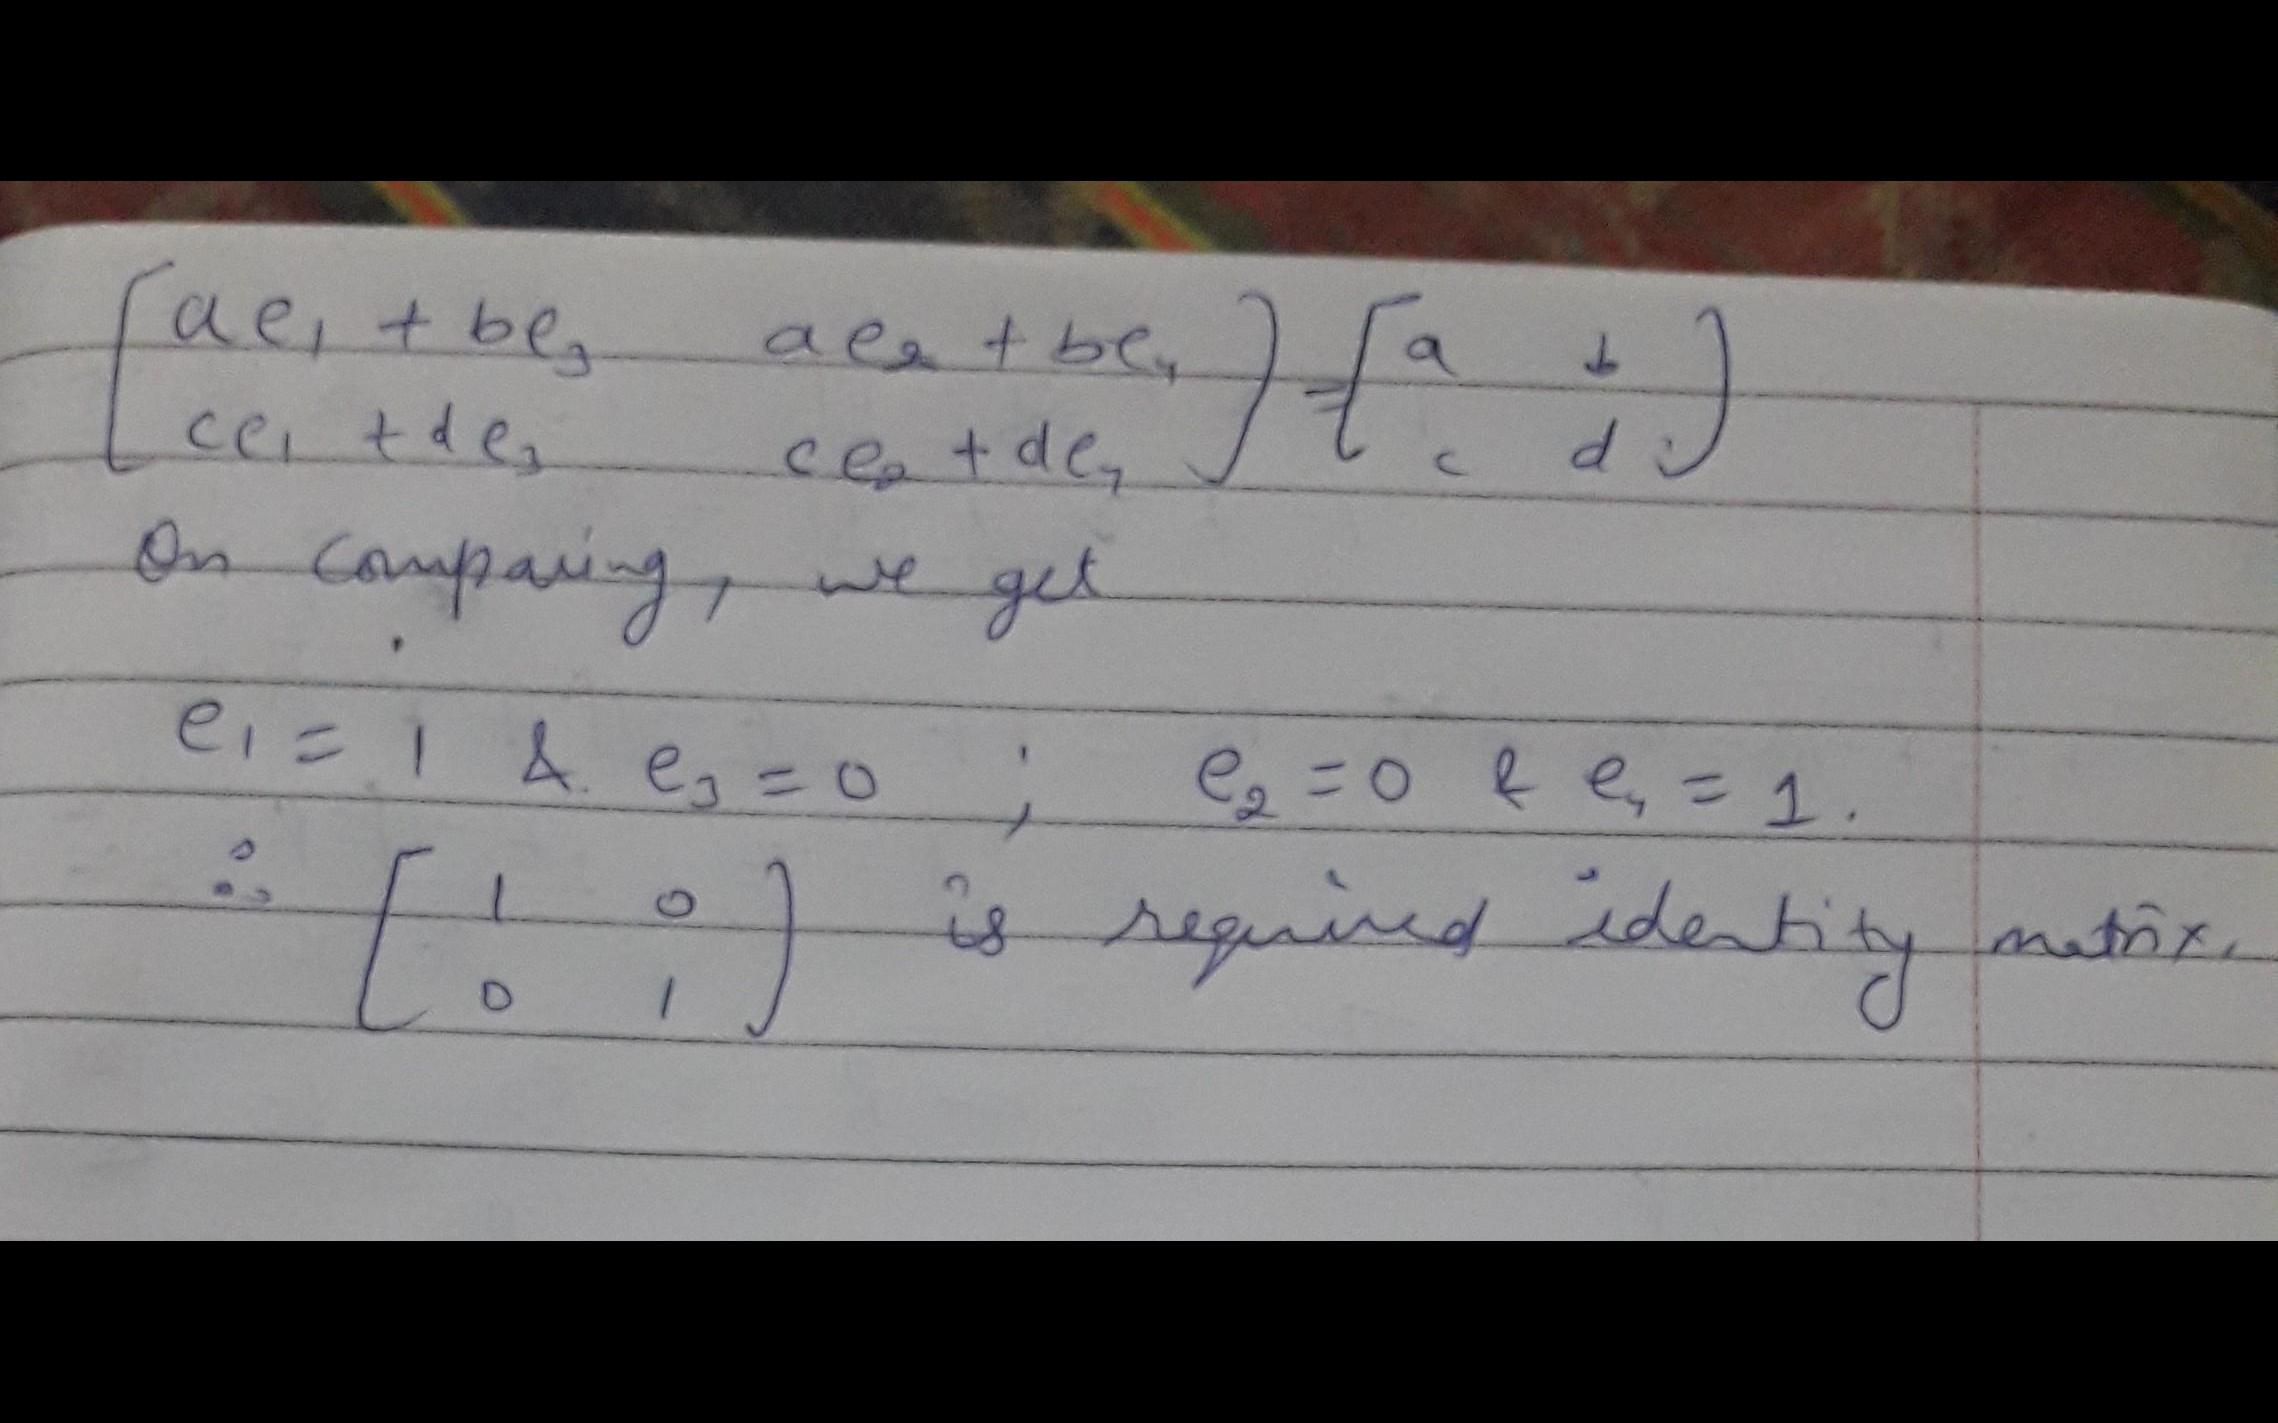 [ae₁ + be₃ ae₂ + be₄] = [a b]
[ce₁ + de₃ ce₂ + de₄] [c d]
On comparing, we get
e₁ = 1 & e₃ = 0 ; e₂ = 0 & e₄ = 1.
∴ [1 0] is required identity matrix.
[0 1]